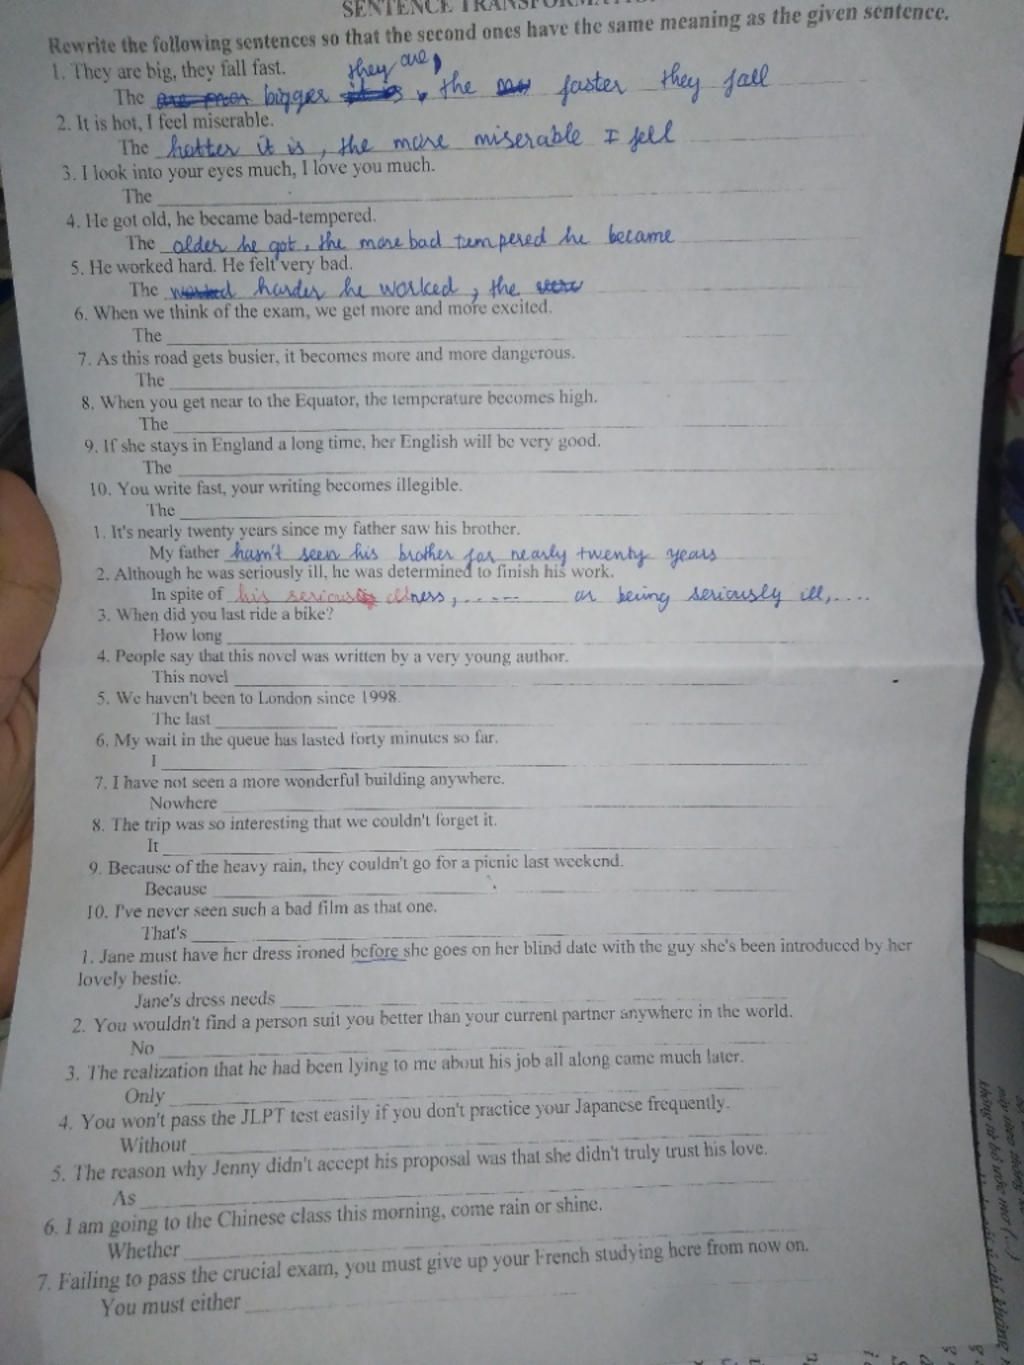 SENTENCE
Rewrite the following sentences so that the second ones have the same meaning as the given sentence.
1. They are big, they fall fast.
they are,
The bigger, the faster they fall
2. It is hot, I feel miserable.
The hotter it is, the more miserable I fell
3. I look into your eyes much, I love you much.
The
4. He got old, he became bad-tempered.
The older he got, the more bad tempered he became
5. He worked hard. He felt very bad.
The harder he worked, the
6. When we think of the exam, we get more and more excited.
The
7. As this road gets busier, it becomes more and more dangerous.
The
8. When you get near to the Equator, the temperature becomes high.
The
9. If she stays in England a long time, her English will be very good.
The
10. You write fast, your writing becomes illegible.
The
1. It's nearly twenty years since my father saw his brother.
My father hasn't seen his brother for nearly twenty years
2. Although he was seriously ill, he was determined to finish his work.
In spite of his serious illness, ..... or being seriously ill, ....
3. When did you last ride a bike?
How long
4. People say that this novel was written by a very young author.
This novel
5. We haven't been to London since 1998.
The last
6. My wait in the queue has lasted forty minutes so far.
I
7. I have not seen a more wonderful building anywhere.
Nowhere
8. The trip was so interesting that we couldn't forget it.
It
9. Because of the heavy rain, they couldn't go for a picnic last weekend.
Because
10. I've never seen such a bad film as that one.
That's
1. Jane must have her dress ironed before she goes on her blind date with the guy she's been introduced by her
lovely bestie.
Jane's dress needs
2. You wouldn't find a person suit you better than your current partner anywhere in the world.
No
3. The realization that he had been lying to me about his job all along came much later.
Only
4. You won't pass the JLPT test easily if you don't practice your Japanese frequently.
Without
5. The reason why Jenny didn't accept his proposal was that she didn't truly trust his love.
As
6. I am going to the Chinese class this morning, come rain or shine.
Whether
7. Failing to pass the crucial exam, you must give up your French studying here from now on.
You must either